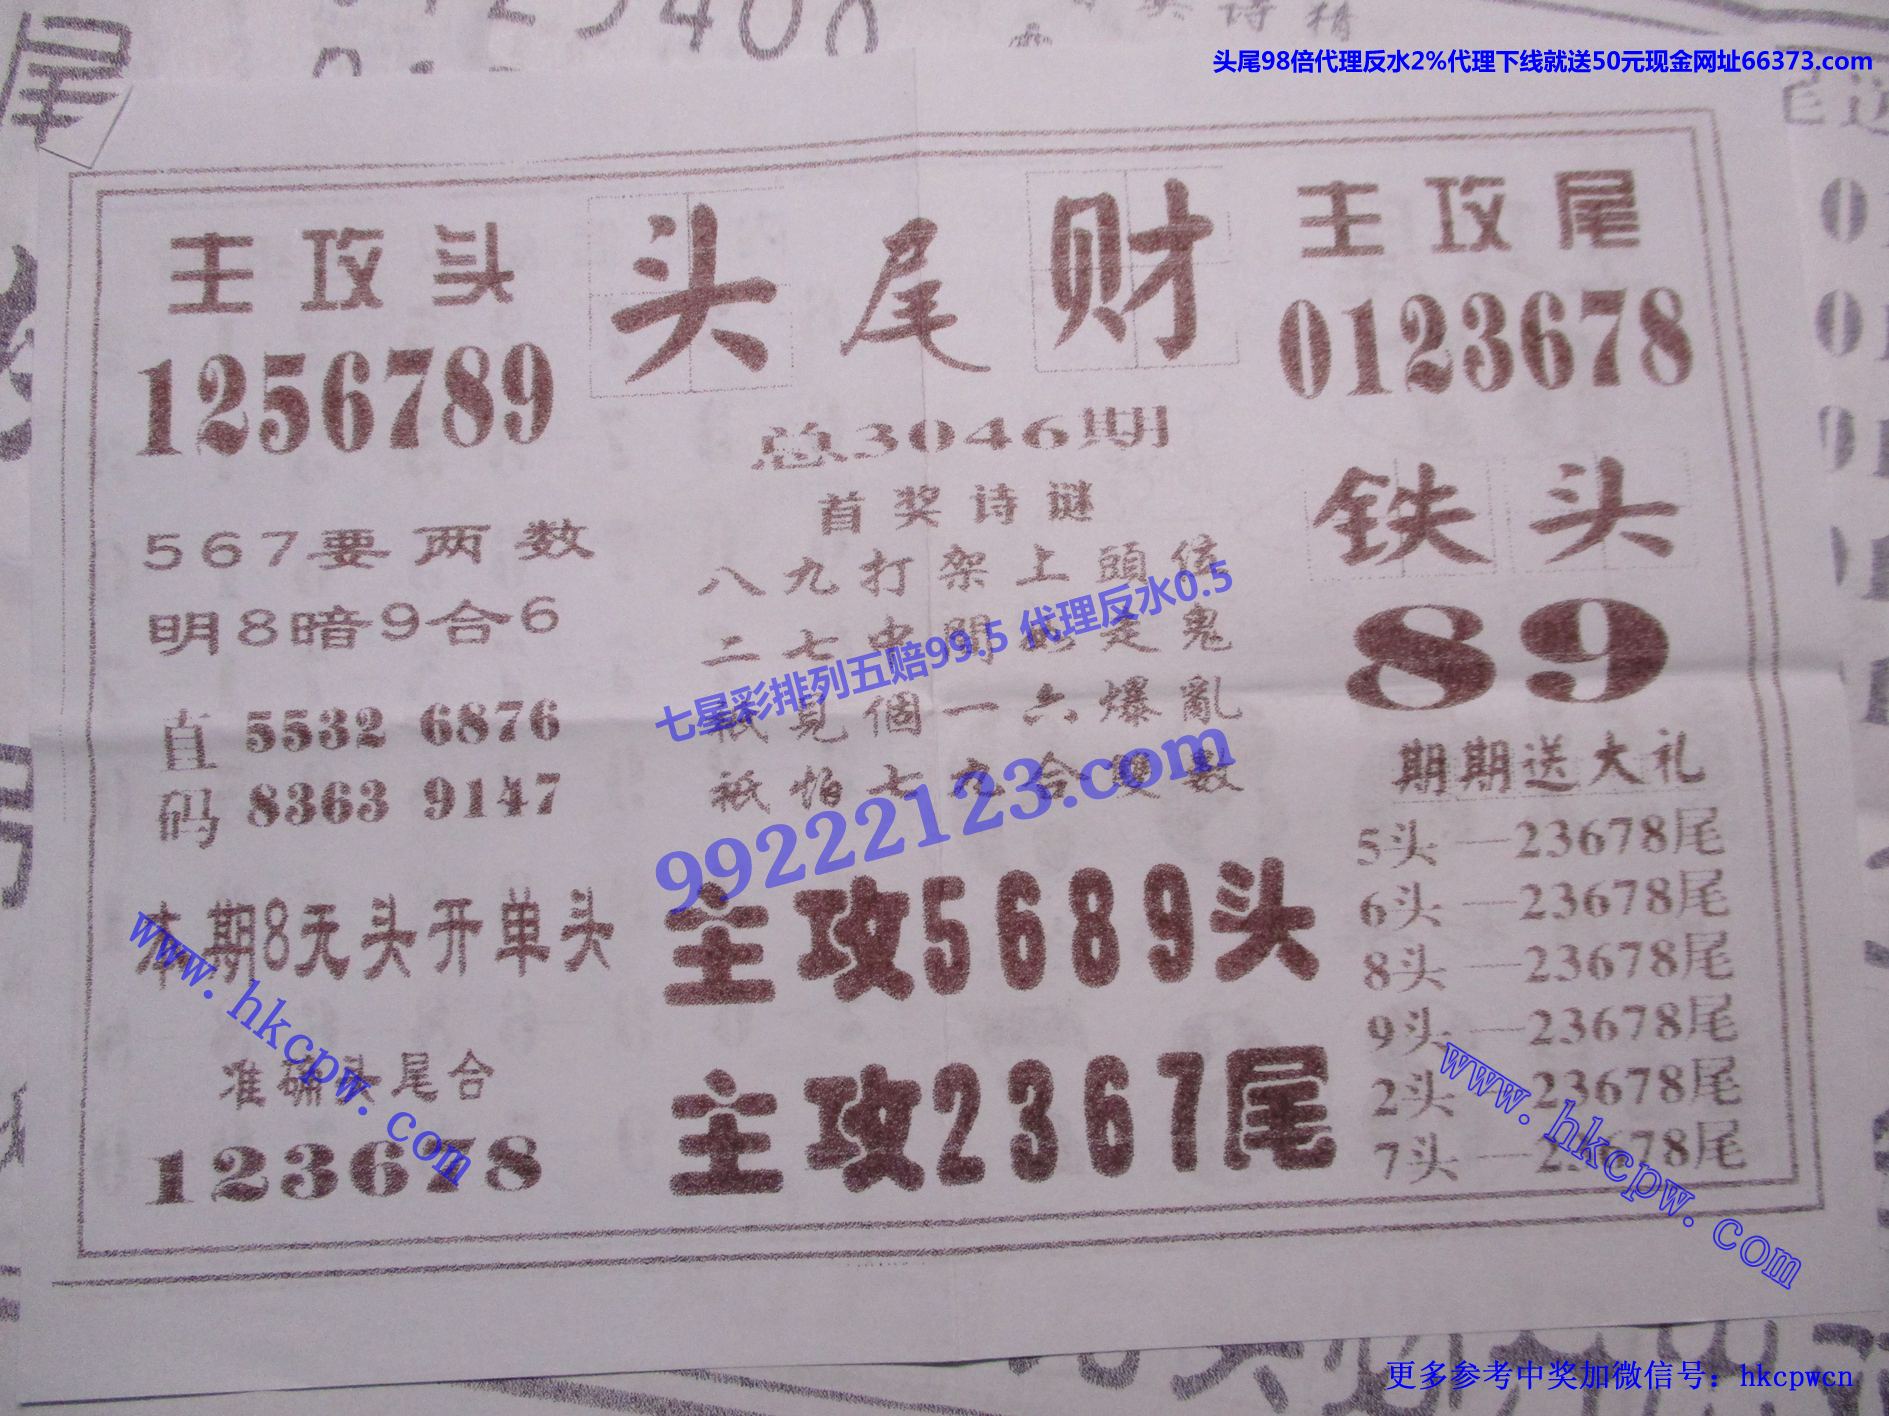 头尾98倍代理反水2%代理下线就送50元现金网址66373.com
主攻头
1256789
头尾财
主攻尾
0123678
总3046期
首奖诗谜
八九打架上頭位
二七中間是鬼
祇見個一六爆亂
祇怕七九合雙數
七星彩排列五赔99.5 代理反水0.5
99222123.com
567要两数
明8暗9合6
直码
5532 6876
8363 9147
本期8天头开单头
准确头尾合
123678
主攻5689头
主攻2367尾
铁头
89
期期送大礼
5头—23678尾
6头—23678尾
8头—23678尾
9头—23678尾
2头—23678尾
7头—23678尾
www.hkcpw.com
www.hkcpw.com
更多参考中奖加微信号：hkcpwcn